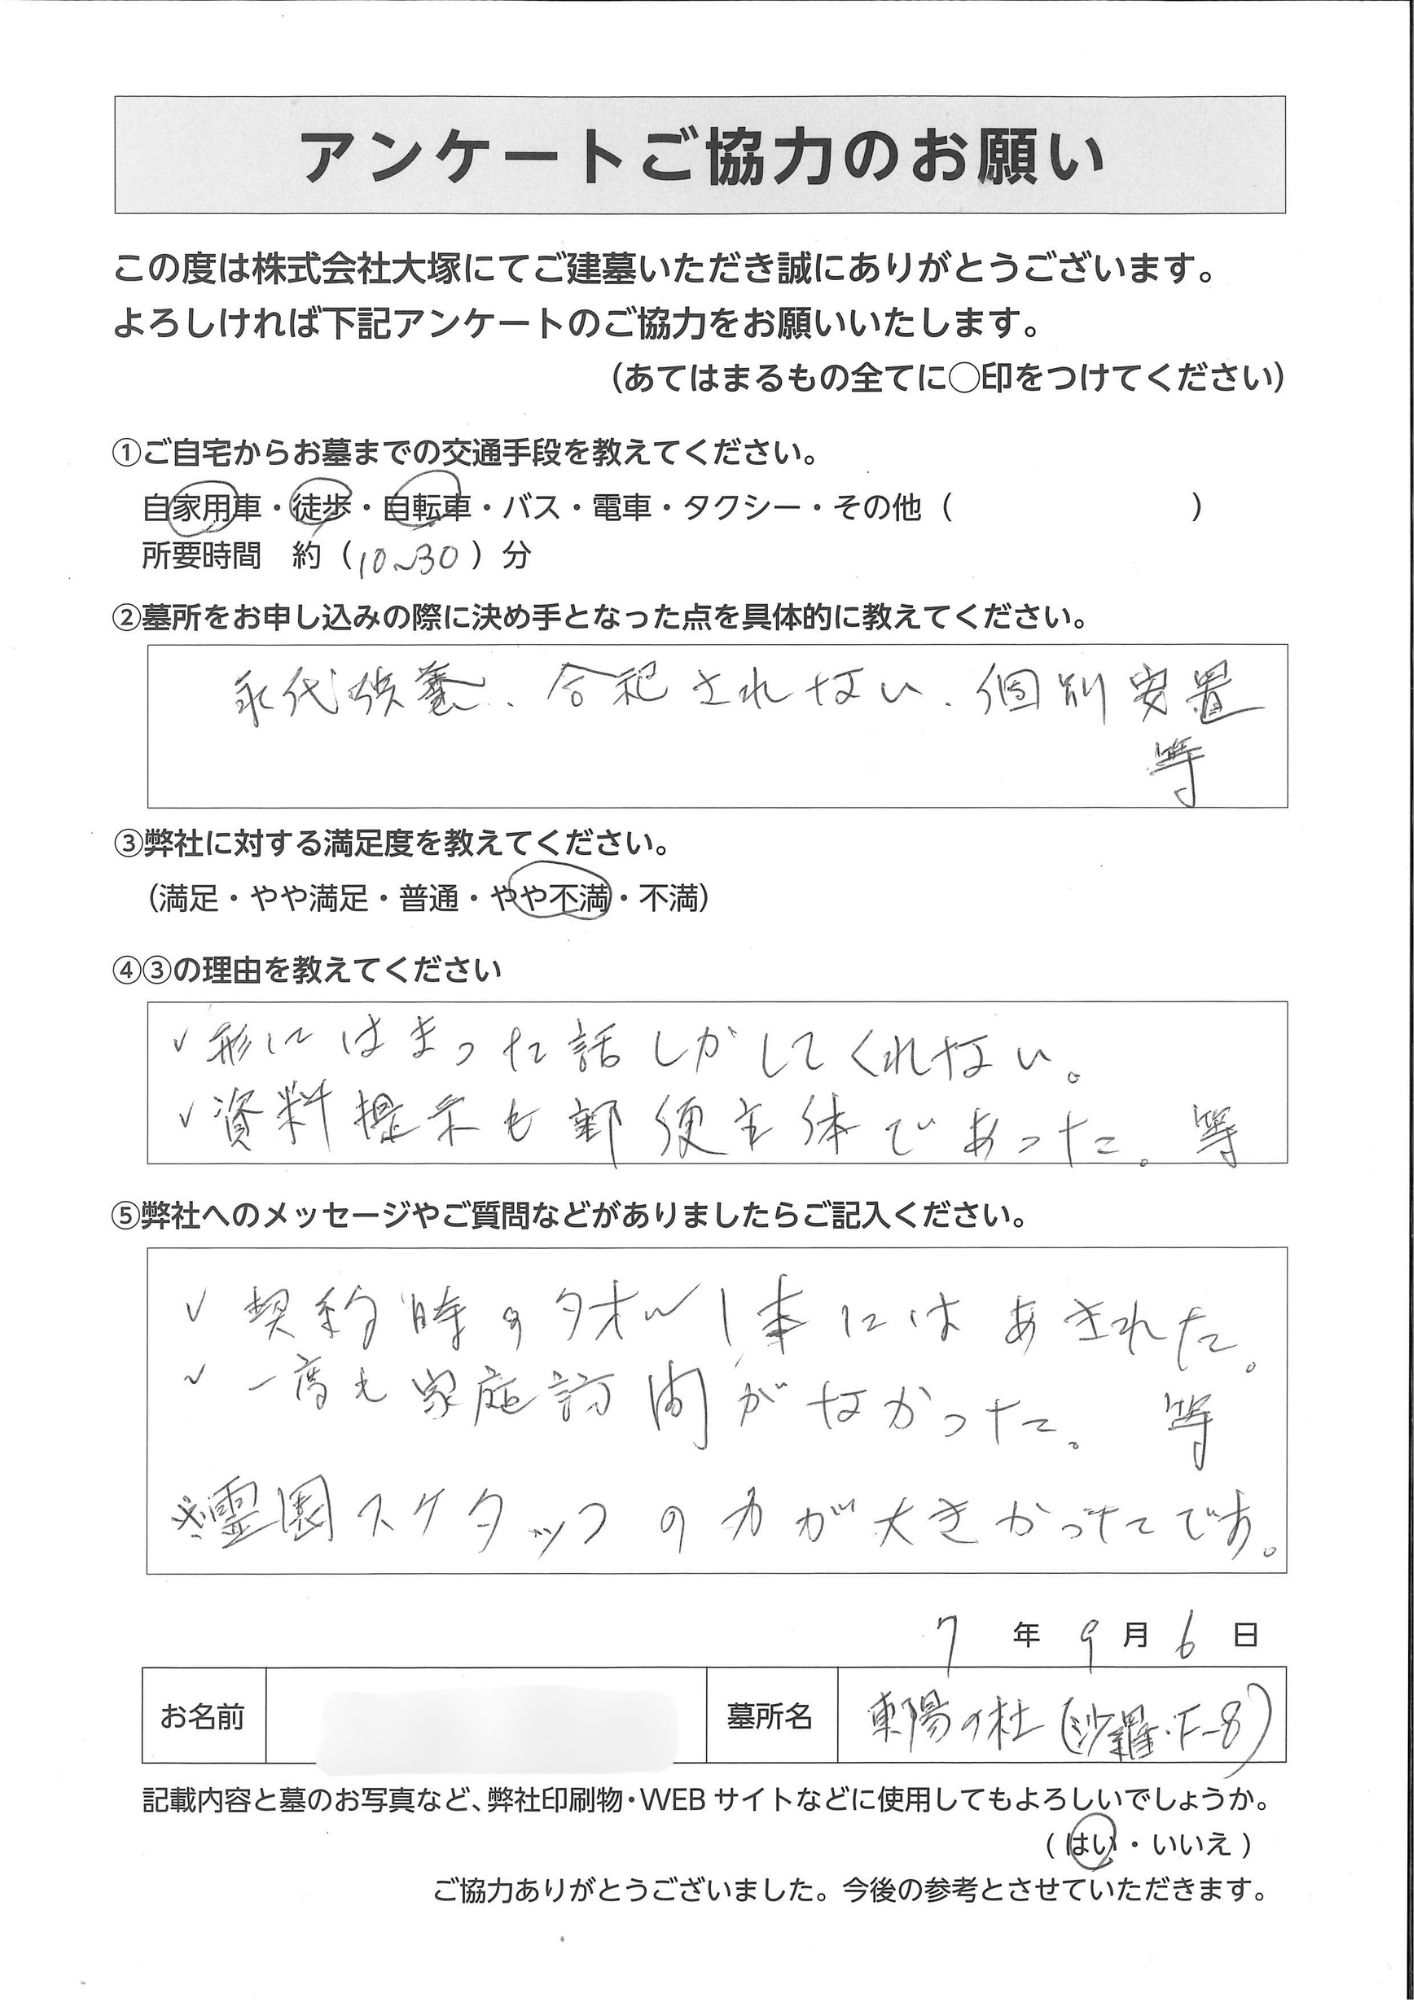 アンケートご協力のお願い
この度は株式会社大塚にてご建墓いただき誠にありがとうございます。
よろしければ下記アンケートのご協力をお願いいたします。
(あてはまるもの全てに○印をつけてください)
①ご自宅からお墓までの交通手段を教えてください。
自家用車・徒歩・自転車・バス・電車・タクシー・その他（　　　　　）
所要時間　約（10~30）分
②墓所をお申し込みの際に決め手となった点を具体的に教えてください。
永代供養、合祀されない、個別安置
等
③弊社に対する満足度を教えてください。
(満足・やや満足・普通・やや不満・不満)
④③の理由を教えてください
✓形にはまった話しかしてくれない。
✓資料提示も郵便主体であった。等
⑤弊社へのメッセージやご質問などがありましたらご記入ください。
✓契約時のタオル1本にはあきれた。
✓一度も家庭訪問がなかった。等
※霊園スタッフの力が大きかったです。
7年9月6日
お名前　墓所名　東陽の杜(沙羅・F-8)
記載内容と墓のお写真など、弊社印刷物・WEBサイトなどに使用してもよろしいでしょうか。
(はい・いいえ)
ご協力ありがとうございました。今後の参考とさせていただきます。